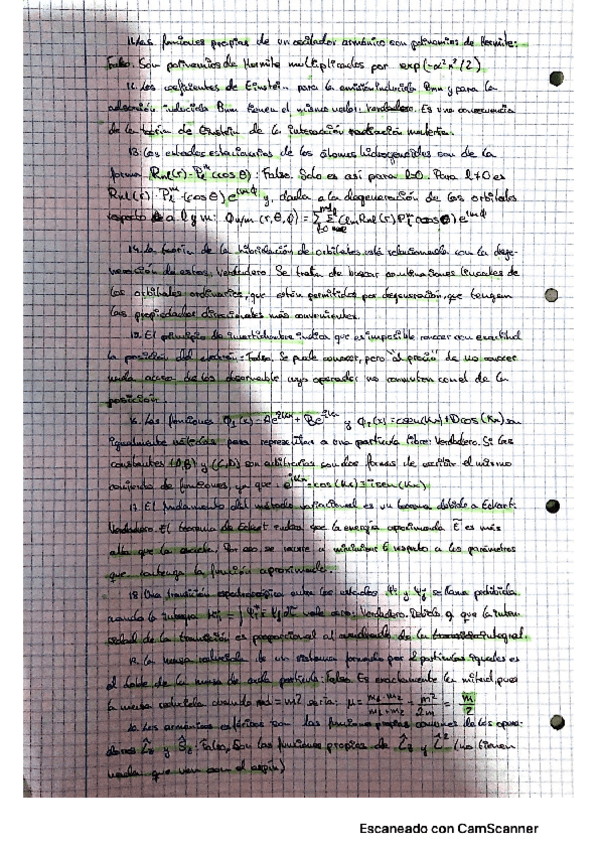 11. Las funciones propias de un oscilador armónico son polinomios de Hermite:
Falso. Son polinomios de Hermite multiplicados por exp(-α²x²/2)
12. Los coeficientes de Einstein para la emisión inducida Bnm y para la
absorción inducida Bmn tienen el mismo valor: Verdadero. Es una consecuencia
de la teoría de Einstein de la interacción radiación materia.
13. Los estados estacionarios de los átomos hidrogenoides son de la
forma Rnl(r)·Pl^m(cos θ): Falso. Solo es así para l=0. Para l≠0 es
Rnl(r)·Pl^m(cos θ)e^imϕ y, dada la degeneración de los orbitales
respecto a l y m:
14. La teoría de la hibridación de orbitales está relacionada con la dege-
neración de estos: Verdadero. Se trata de buscar combinaciones lineales de
los orbitales ordinarios, que están permitidas por degeneración, que tengan
las propiedades direccionales más convenientes.
15. El principio de incertidumbre indica que es imposible conocer con exactitud
la posición del electrón: Falso. Se puede conocer, pero "al precio" de no conocer
nada acerca de los observable cuyo operador no conmuten con el de la
posición.
16. Las funciones φ1(x)=Ae^ikx + Be^-ikx y φ2(x)=Csen(Kx)+Dcos(Kx) son
igualmente válidas para representar a una partícula libre: Verdadero. Si las
constantes (A,B) y (C,D) son arbitrarias son dos formas de escribir el mismo
conjunto de funciones, ya que: e^ikx=cos(Kx)+isen(Kx)
17. El fundamento del método variacional es un teorema debido a Eckart:
Verdadero. El teorema de Eckart indica que la energía aproximada Ẽ es más
alta que la exacta. Por eso, se recurre a minimizar Ẽ respecto a los parámetros
que contenga la función aproximada.
18. Una transición espectroscópica entre los estados Ψi y Ψj se llama prohibida
cuando la integral vale cero: Verdadero. Debido a que la inten-
sidad de la transición es proporcional al cuadrado de la integral.
19. La masa reducida de un sistema formado por 2 partículas iguales es
el doble de la masa de cada partícula: Falso. Es exactamente la mitad, pues
la masa reducida cuando m1=m2 sería: μ = m1·m2/m1+m2 = m²/2m = m/2
20. Los armónicos esféricos son las funciones propias comunes de los opera-
dores L̂z y Ŝz: Falso, Son las funciones propias de L̂z y L̂² (no tienen
nada que ver con el espín)
Escaneado con CamScanner